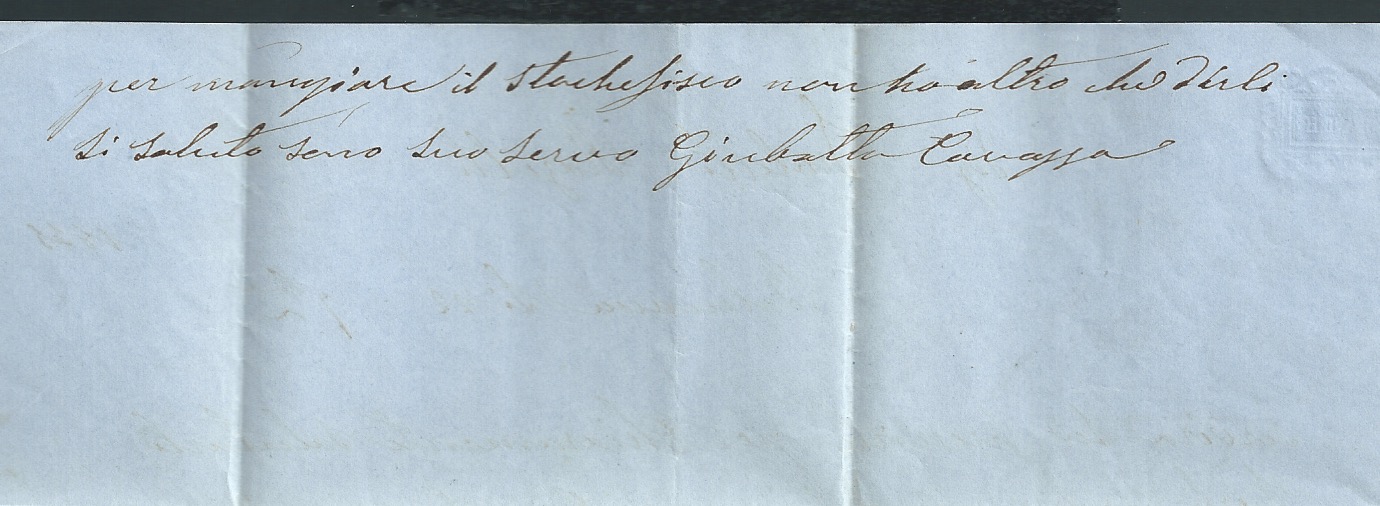 per mangiare il stochefisco non ho altro che dirli
si saluto sono suo servo Giubatta Cavassa